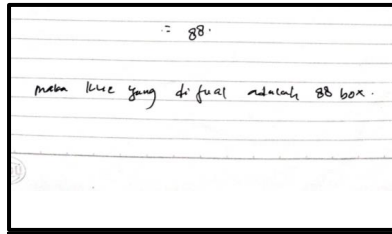 = 88.
maka kue yang di jual adalah 88 box.